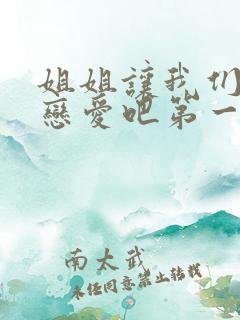 姐姐讓我们
戀愛吧第一
南太武
未经同意禁止转载